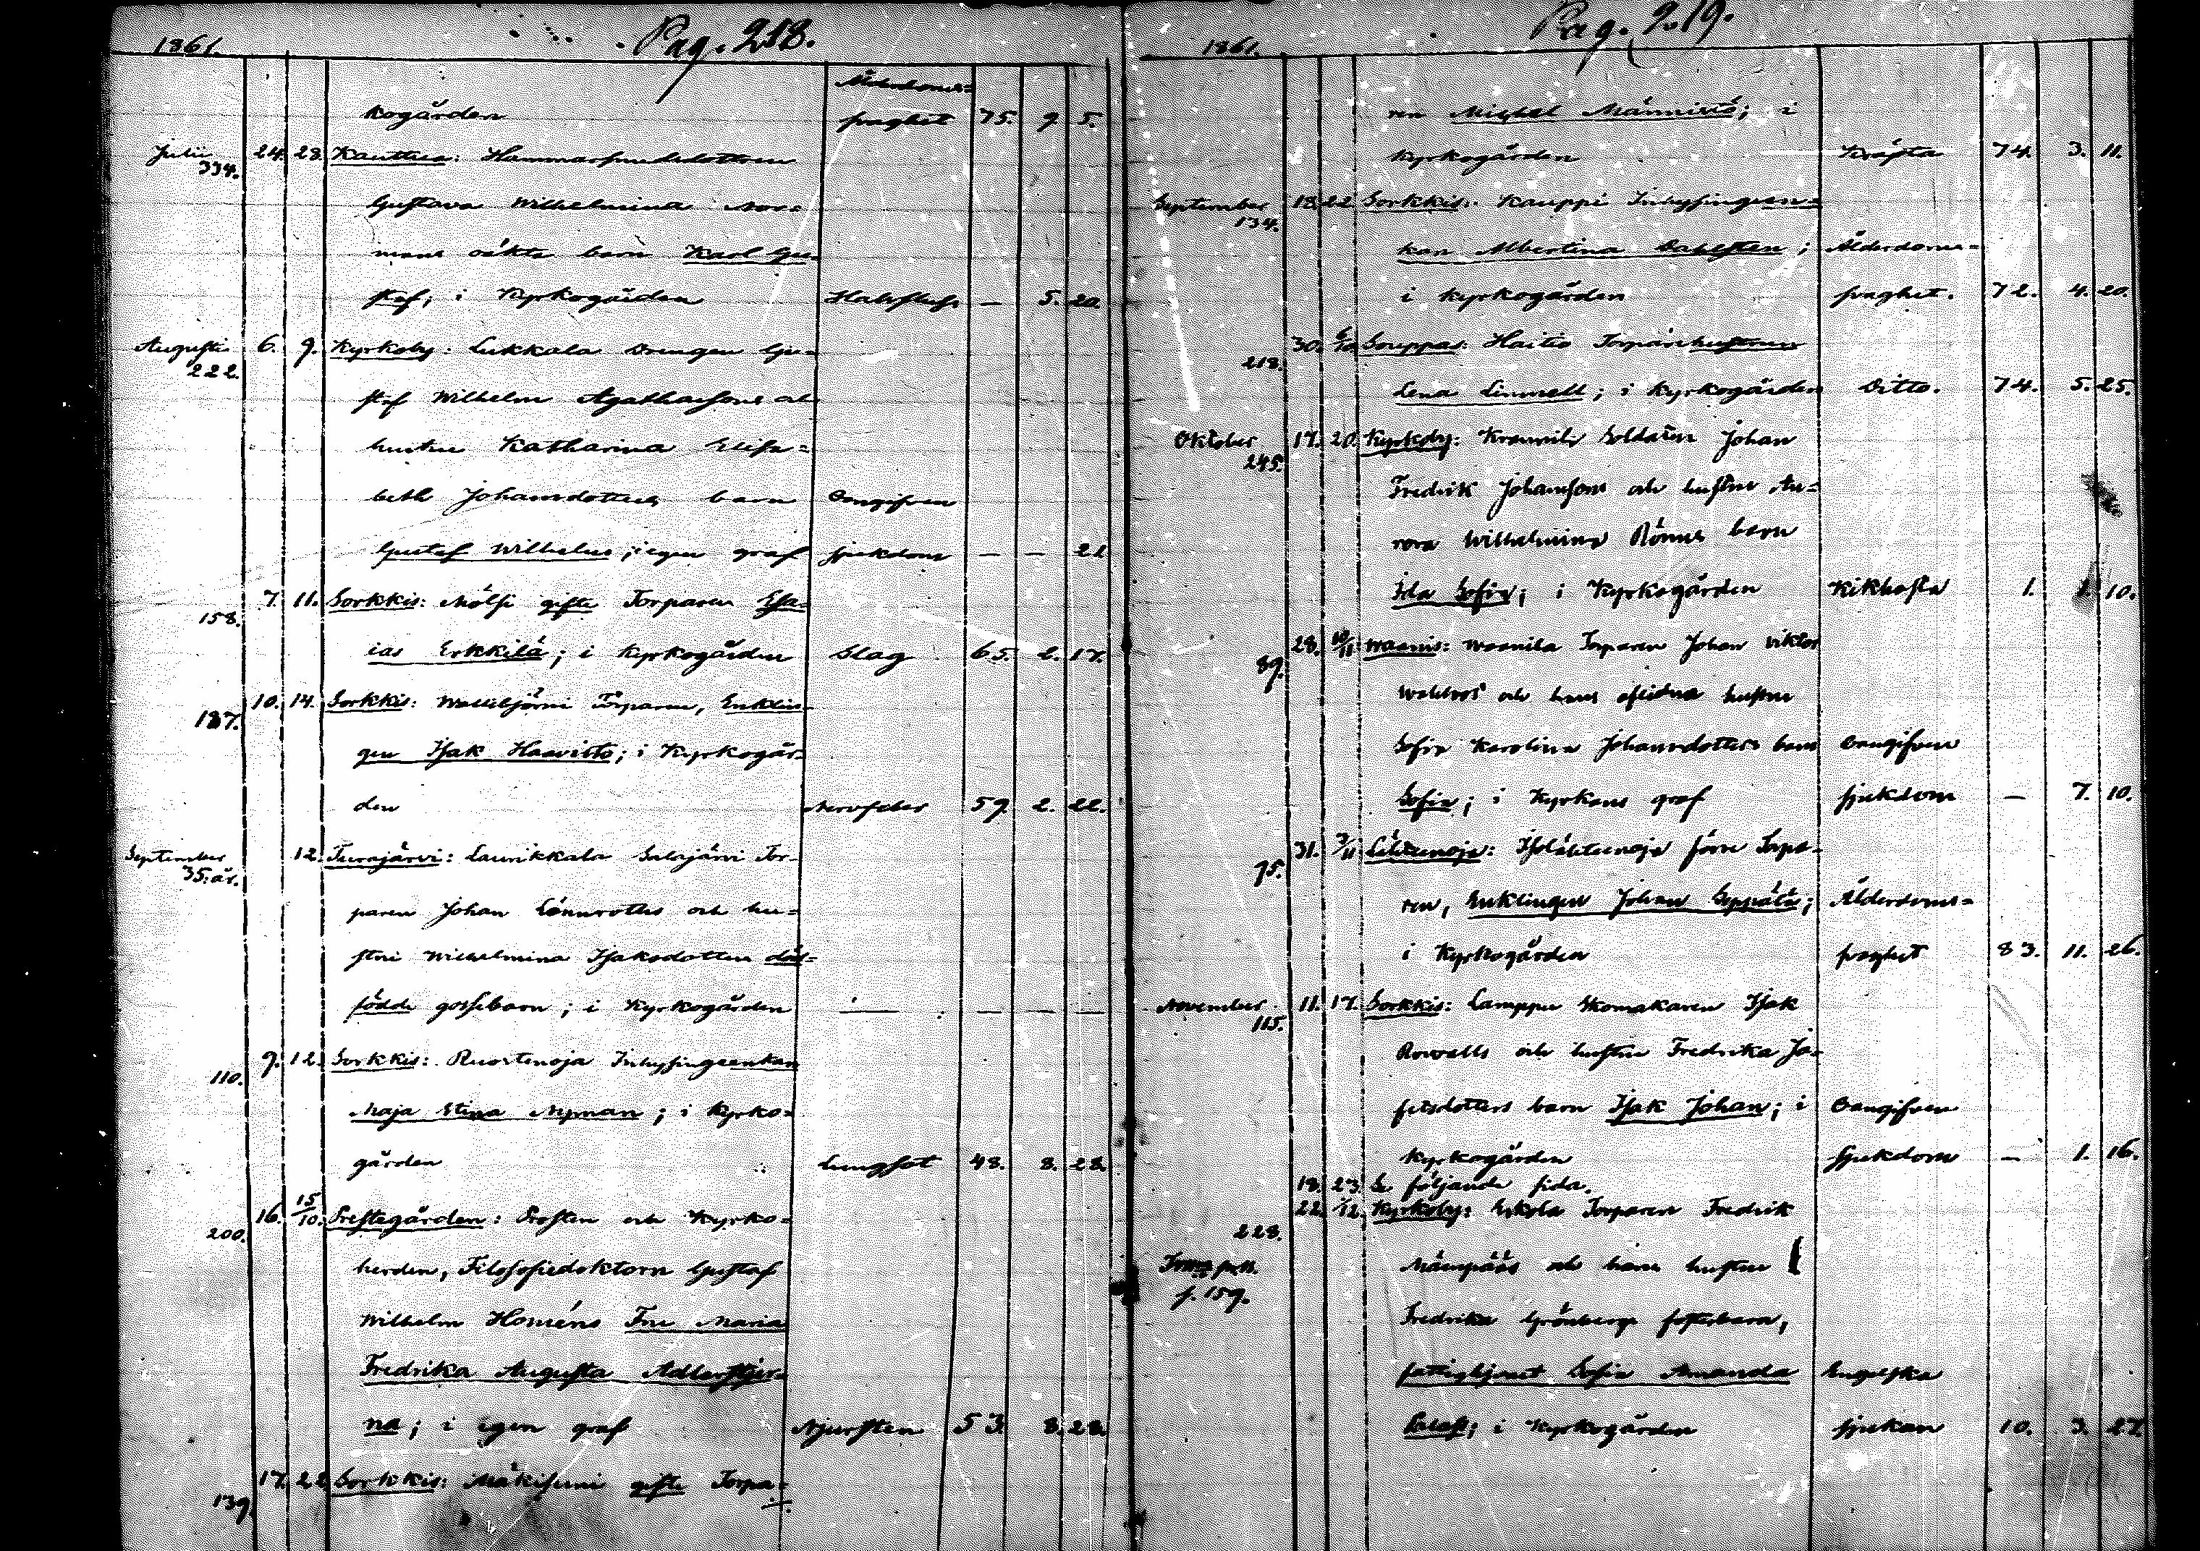 1861.
Pag. 218.
Ålderdoms=
kogården
svaghet 75. 9. 5.
Julii 24. 28. Kauttua: Hammarsmedsdottren
334.
Gustava Wilhelmina Nor=
mans oäkta barn Karl Gu=
staf; i Kyrkogården Halsfluss — 5. 20.
Augusti 6. 9. Kyrkoby: Lukkala Drengen Gu=
222.
staf Wilhelm Agathassons och
hustru Katharina Elisa=
beth Johansdotters barn Oangifven
Gustaf Wilhelm; i egen graf sjukdom — — 21
7. 11. Sorkkis: Mölsi gifte Torparen Esa=
158.
ias Erkkilä; i Kyrkogården Slag 65. 2. 17.
10. 14. Sorkkis: Torparen, Enklin=
187.
gen Isak Haavisto; i Kyrkogår=
den Nervfeber 59. 2. 22.
September 12. Turajärvi: Laurikkala Salajärvi Tor=
35. år.
paren Johan Lönnroths och hu=
stru Wilhelmina Isaksdotters död=
födde gossebarn; i Kyrkogården — — — —
9. 12. Sorkkis: Ruostenoja Inhysingeenkan
110.
Maja Stina Nyman; i Kyrko=
gården Lungsot 48. 8. 28.
16. 15/10. Prestegården: Prosten och Kyrko=
200.
herden, Filosofiedoktorn Gustaf
Wilhelm Homéns Fru Maria
Fredrika Augusta Adlerstjer=
na; i egen graf Njursten 53. 8. 28.
17. 22. Sorkkis: Mäkisuni gifte Torpa=
139.
1861.
Pag. 219.
ren Michel Männistö; i
Kyrkogården Kräfta 74. 3. 11.
September 18. 22. Sorkkis: Kauppi Inhysingeen=
134.
kan Albertina Dahlsten; Ålderdoms=
i Kyrkogården svaghet. 72. 4. 20.
30. 6/10 Souppas: Haitio Torparehustrun
218.
Lena Linnell; i Kyrkogården Ditto. 74. 5. 25.
Oktober 17. 20. Kyrkoby: Soldaten Johan
245.
Fredrik Johanssons och hustru Au=
rora Wilhelmina Römus barn
Ida Sofia; i Kyrkogården Kikhosta 1. 1. 10.
28. 10/11 Waanis: Waanila Torparen Johan Viktor
89.
och hans aflidna hustru
Sofia Karolina Johansdotters barn Oangifven
Sofia; i Kyrkans graf sjukdom — 7. 10.
31. 3/11 förre Torpa=
75.
ren, Enklingen Johan Seppälä; Ålderdoms=
i Kyrkogården svaghet 83. 11. 26.
November 11. 17. Sorkkis: Lamppu Skomakaren Isak
115.
Rowalls och hustru Fredrika Jo=
sefsdotters barn Isak Johan; i Oangifven
Kyrkogården Sjukdom — 1. 16.
18. 23. Se följande sida.
22. 1/12. Kyrkoby: Eskola Torparen Fredrik
228.
Mäenpääs och hans hustru
p. 159.
Fredrika Grönbergs fosterbarn,
fattighjonet Sofia Amanda Engelska
i Kyrkogården sjukan 10. 3. 27.